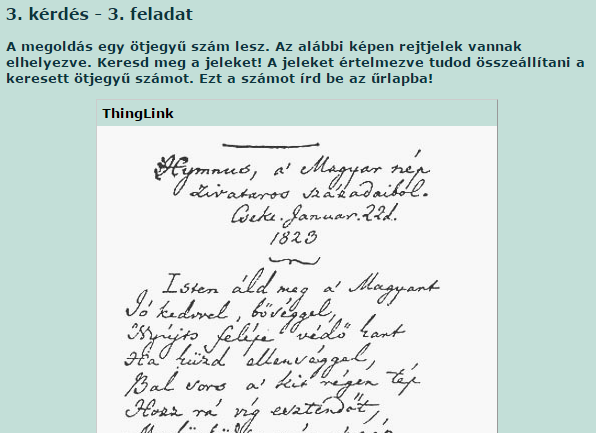 3. kérdés - 3. feladat
A megoldás egy ötjegyű szám lesz. Az alábbi képen rejtjelek vannak
elhelyezve. Keresd meg a jeleket! A jeleket értelmezve tudod összeállítani a
keresett ötjegyű számot. Ezt a számot írd be az űrlapba!
ThingLink
Hymnus, a' Magyar nép
zivataros századaiból.
Cseke. Januar. 22d.
1823
Isten áld meg a' Magyart
Jó kedvvel, bőséggel,
Nyújts feléje védő kart
Ha küzd ellenséggel,
Bal sors a' kit régen tép
Hozz rá víg esztendőt,